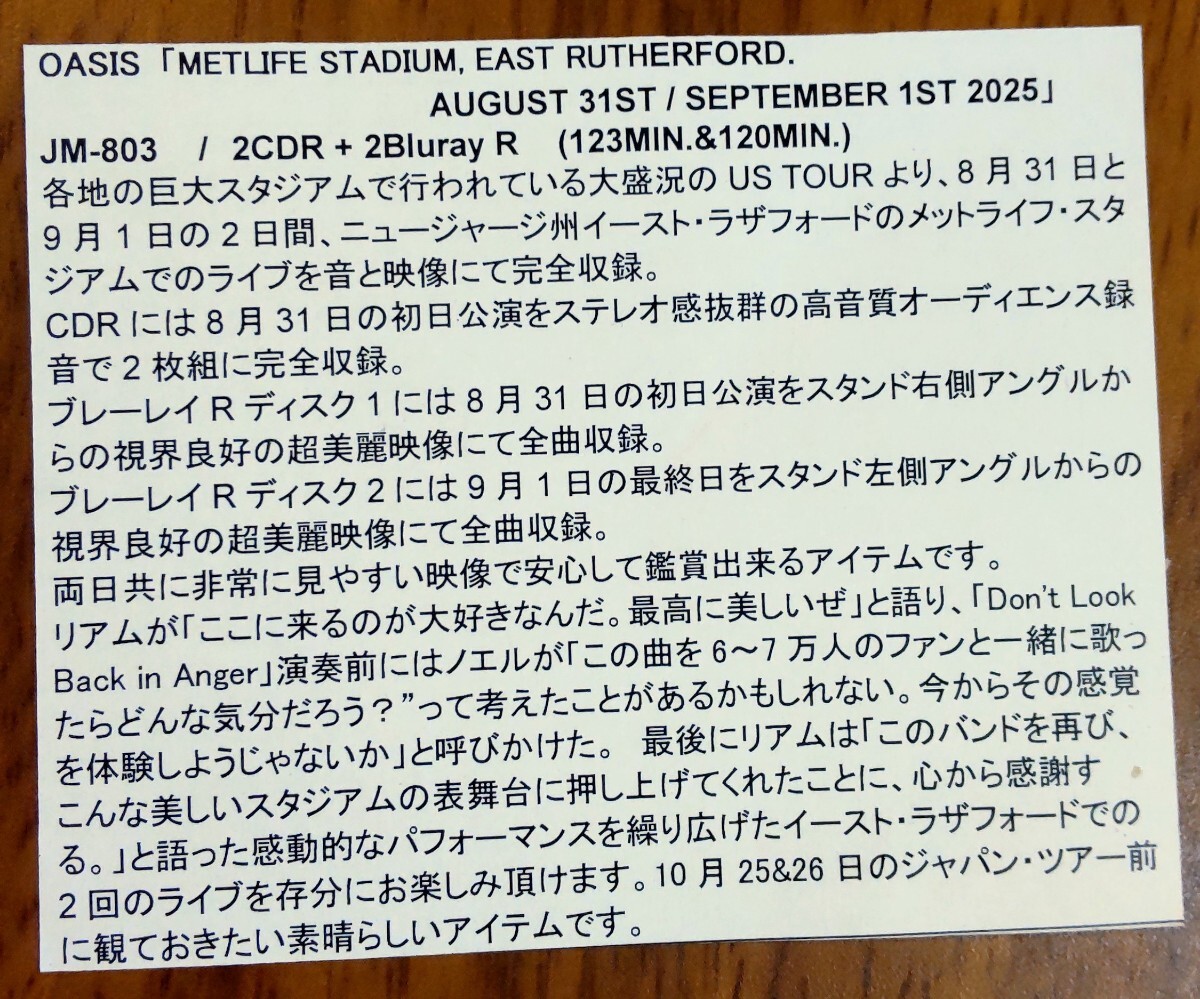 OASIS「METLIFE STADIUM, EAST RUTHERFORD.
AUGUST 31ST / SEPTEMBER 1ST 2025」
JM-803 / 2CDR + 2Bluray R (123MIN.&120MIN.)
各地の巨大スタジアムで行われている大盛況の US TOUR より、8 月 31 日と
9 月 1 日の 2 日間、ニュージャージ州イースト・ラザフォードのメットライフ・スタ
ジアムでのライブを音と映像にて完全収録。
CDR には 8 月 31 日の初日公演をステレオ感抜群の高音質オーディエンス録
音で 2 枚組に完全収録。
ブレーレイ R ディスク 1 には 8 月 31 日の初日公演をスタンド右側アングルか
らの視界良好の超美麗映像にて全曲収録。
ブレーレイ R ディスク 2 には 9 月 1 日の最終日をスタンド左側アングルからの
視界良好の超美麗映像にて全曲収録。
両日共に非常に見やすい映像で安心して鑑賞出来るアイテムです。
リアムが「ここに来るのが大好きなんだ。最高に美しいぜ」と語り、「Don't Look
Back in Anger」演奏前にはノエルが「この曲を 6～7 万人のファンと一緒に歌っ
たらどんな気分だろう？”って考えたことがあるかもしれない。今からその感覚
を体験しようじゃないか」と呼びかけた。 最後にリアムは「このバンドを再び、
こんな美しいスタジアムの表舞台に押し上げてくれたことに、心から感謝す
る。」と語った感動的なパフォーマンスを繰り広げたイースト・ラザフォードでの
2 回のライブを存分にお楽しみ頂けます。10 月 25&26 日のジャパン・ツアー前
に観ておきたい素晴らしいアイテムです。